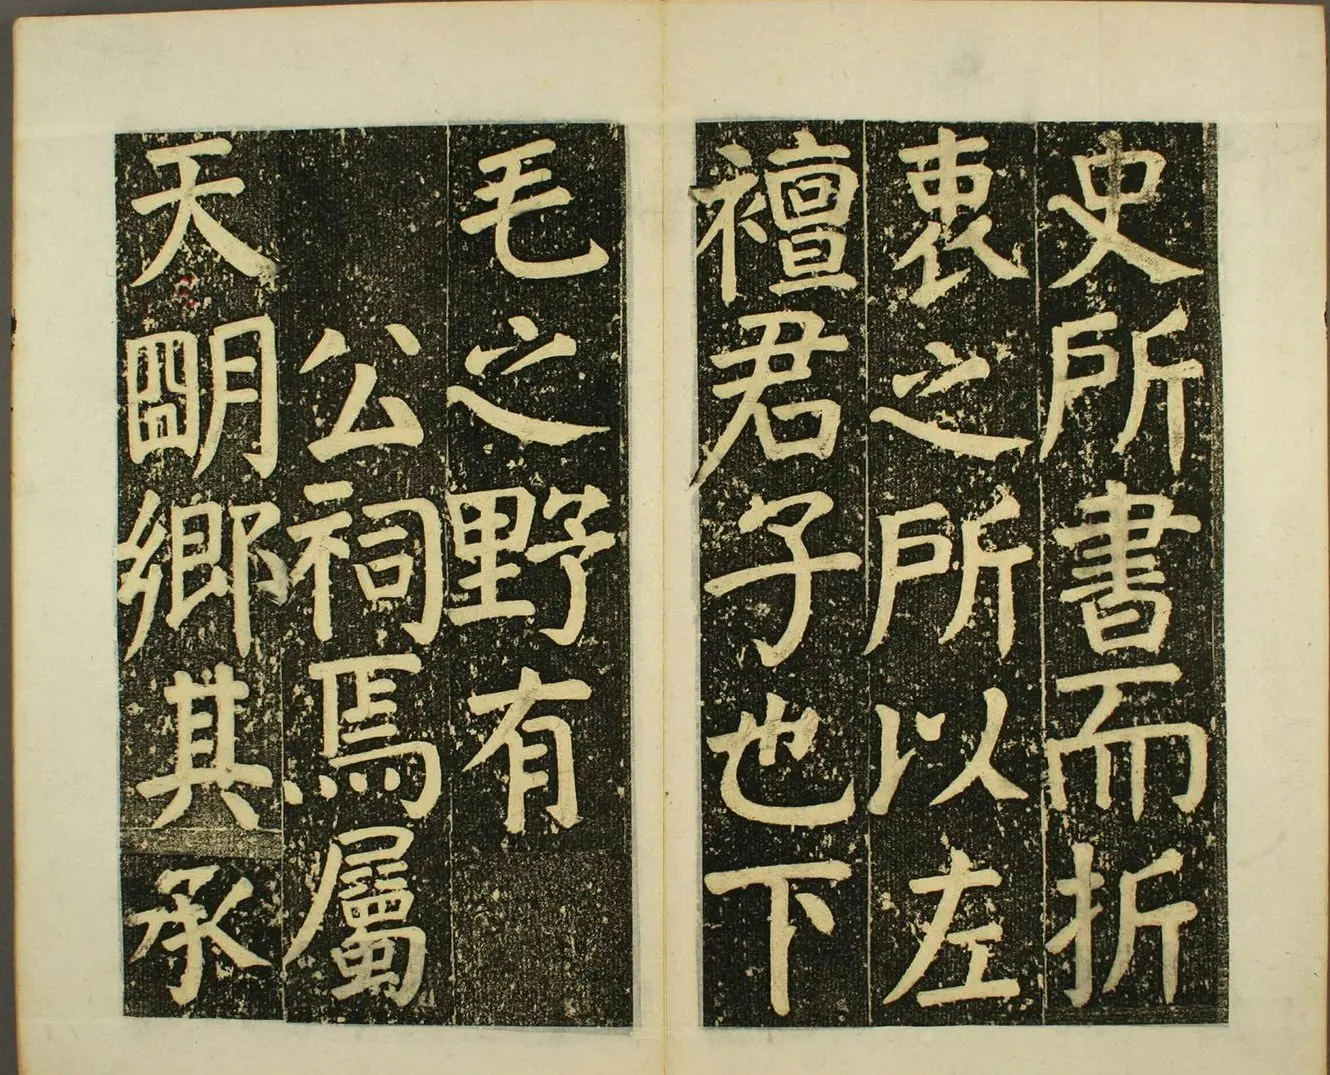 史所書而折
衷之所以左
襢君子也下
毛之野有
公祠焉屬
天朙鄉其承